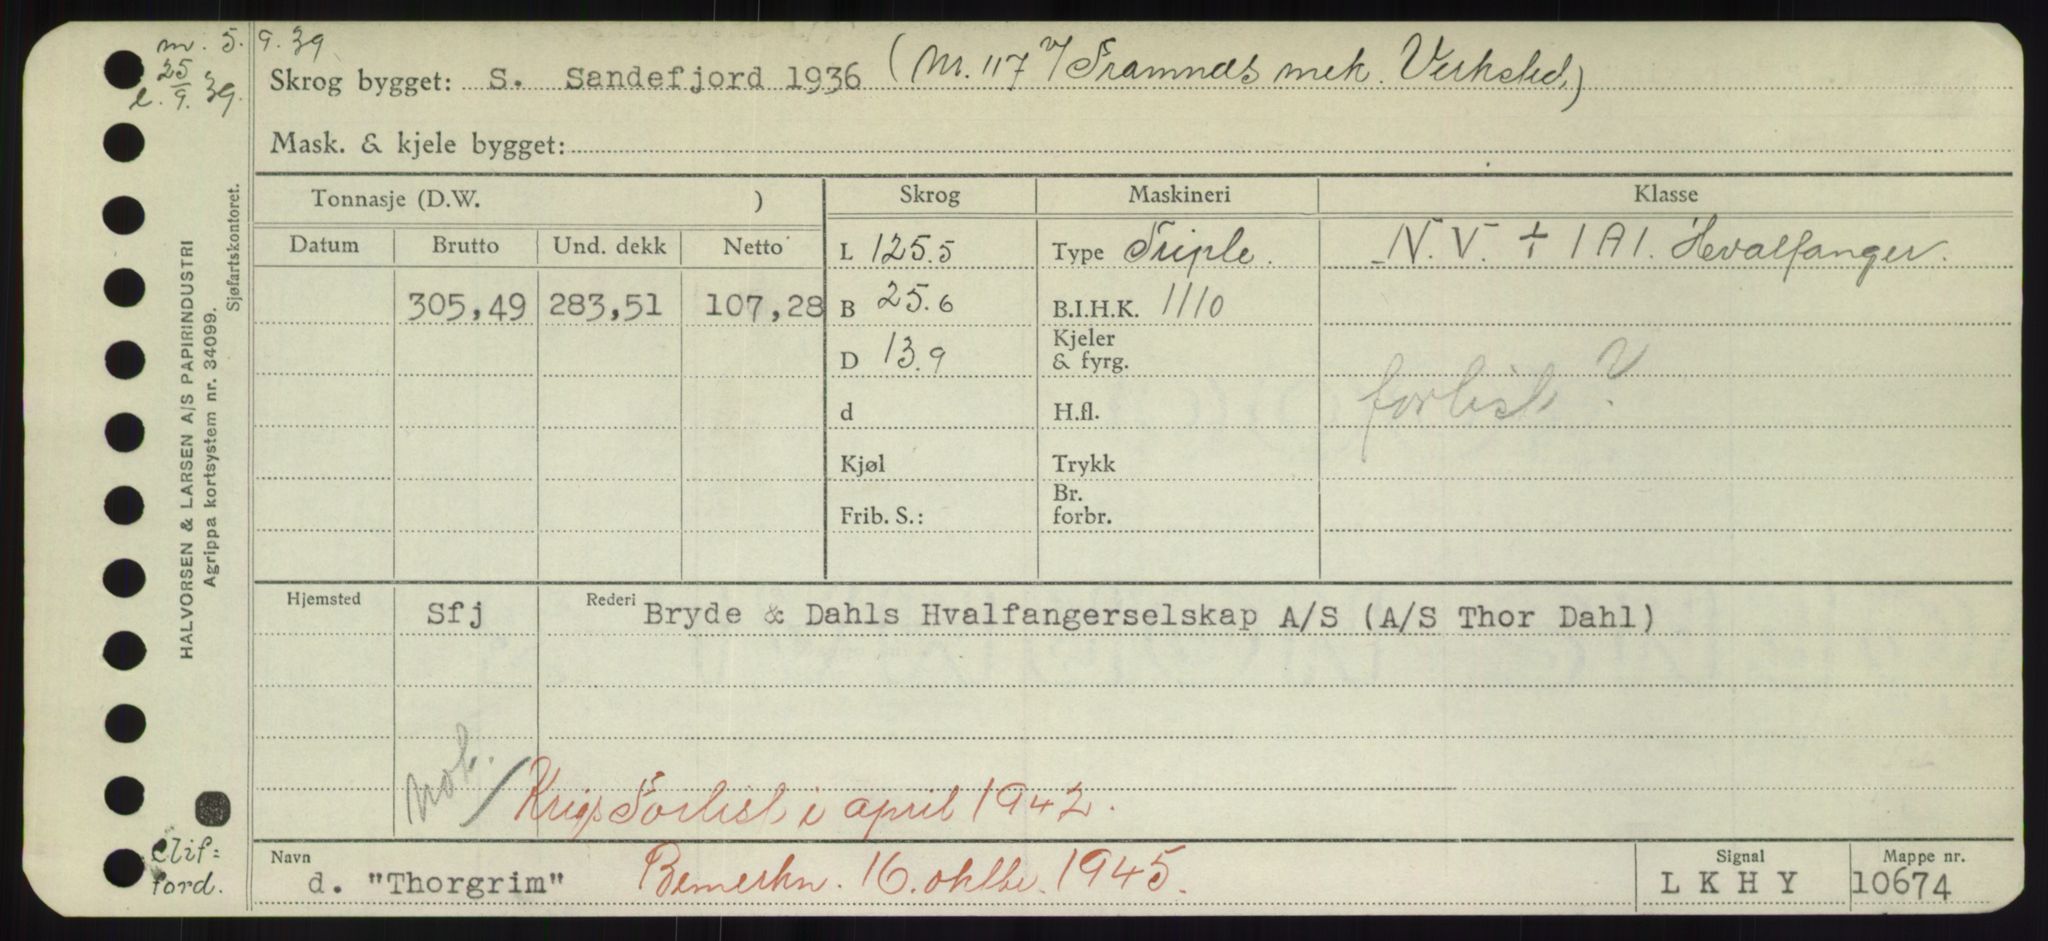 m. 5. 9. 39
e. 25/9. 39.
Skrog bygget: S. Sandefjord 1936 (Nr. 117 v/ Framnæs mek. Verksted.)
Mask. & kjele bygget:
Tonnasje (D.W. )
Skrog
Maskineri
Klasse
Datum Brutto Und. dekk Netto
L 125.5
Type Triple.
N. V. + 1 A 1. Hvalfanger.
305,49 283,51 107,28
B 25.6
B.I.H.K. 1110
D 13.9
Kjeler
& fyrg.
forlist?
d
H.fl.
Kjøl
Trykk
Frib. S.:
Br.
forbr.
Hjemsted Sfj Rederi Bryde & Dahls Hvalfangerselskap A/S (A/S Thor Dahl)
not.
Krigsforlist i april 1942.
Navn d. "Thorgrim"
Bemerkn. 16. oktbr. 1945.
Signal
L K H Y
Mappe nr.
10674
Clif=
ford.
HALVORSEN & LARSEN A/S PAPIRINDUSTRI
Agrippa kortsystem nr. 34099.
Sjøfartskontoret.